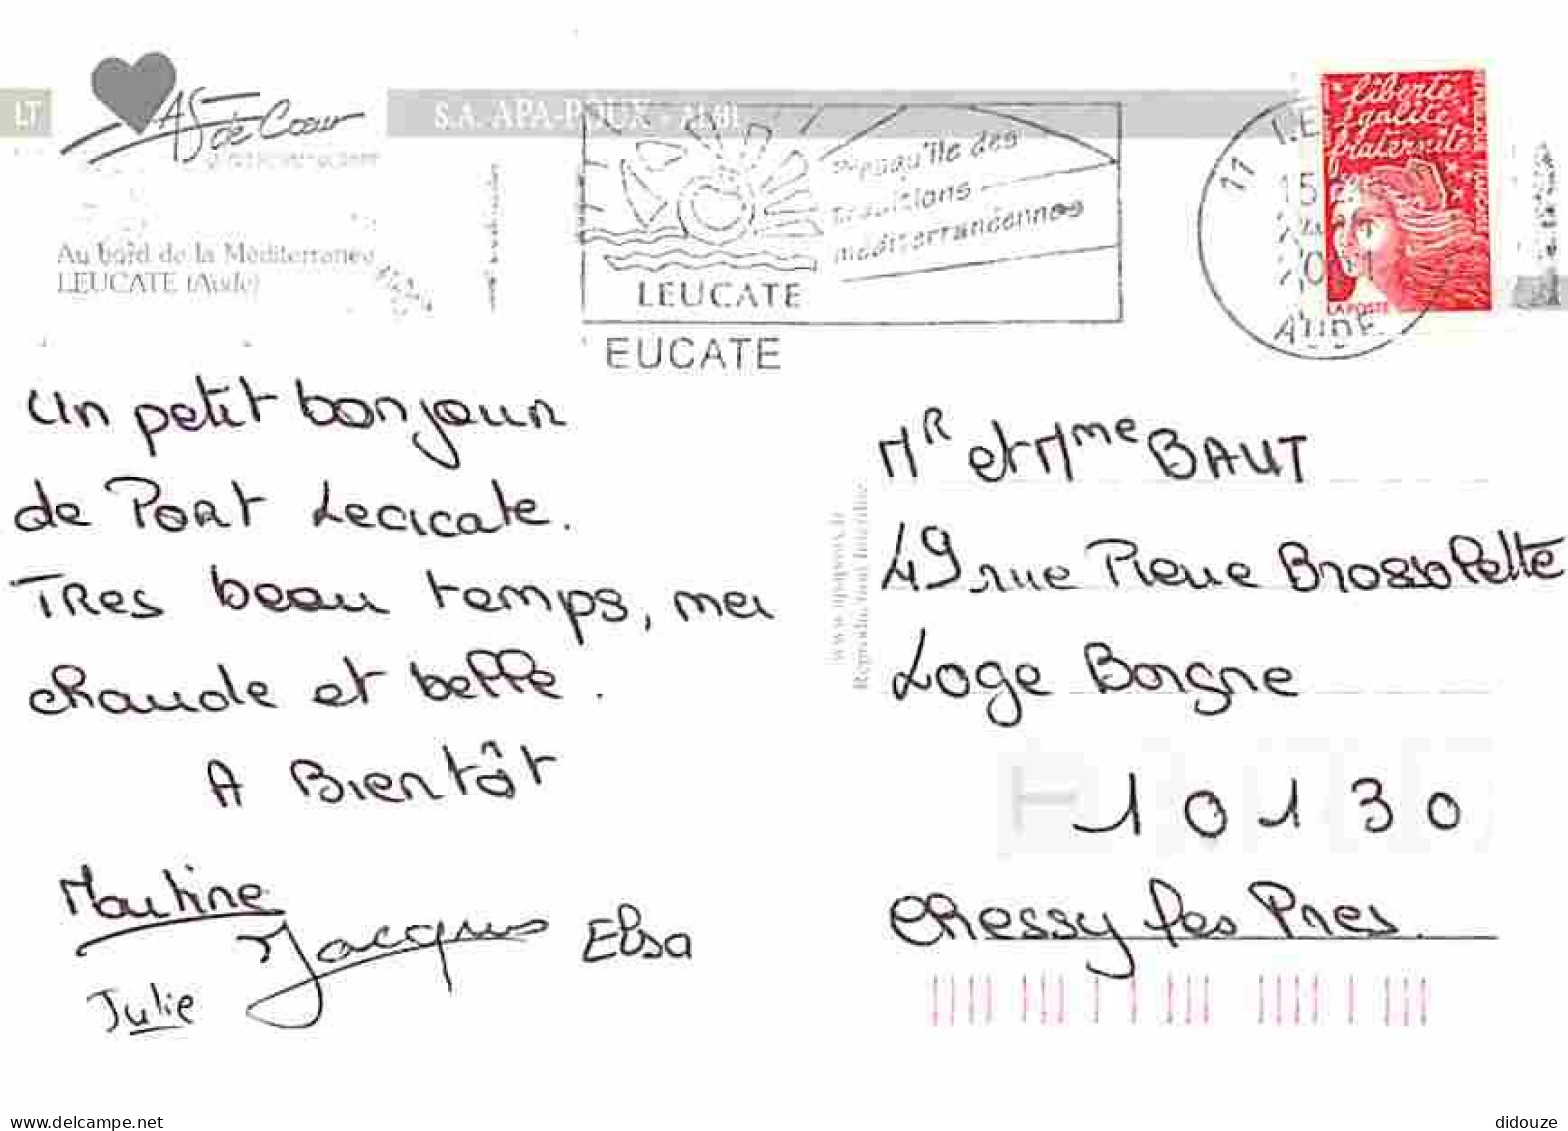 LT
As de Coeur
S.A. APA-POUX - ALBI
Au bord de la Méditerranée
LEUCATE (Aude)
Presqu'île des
traditions
méditerranéennes
LEUCATE
EUCATE
11 LE
15
2001
AUDE
liberté
égalité
fraternité
LA POSTE
Un petit bonjour
de Port Leucate.
Tres beau temps, mer
chaude et belle.
A Bientôt
Martine
Jacques
Elsa
Julie
Mr et Mme BAUT
49 rue Pierre Brossolette
Loge Borgne
10130
Chessy les Pres.
www.apapoux.fr
Reproduction Interdite
didouze